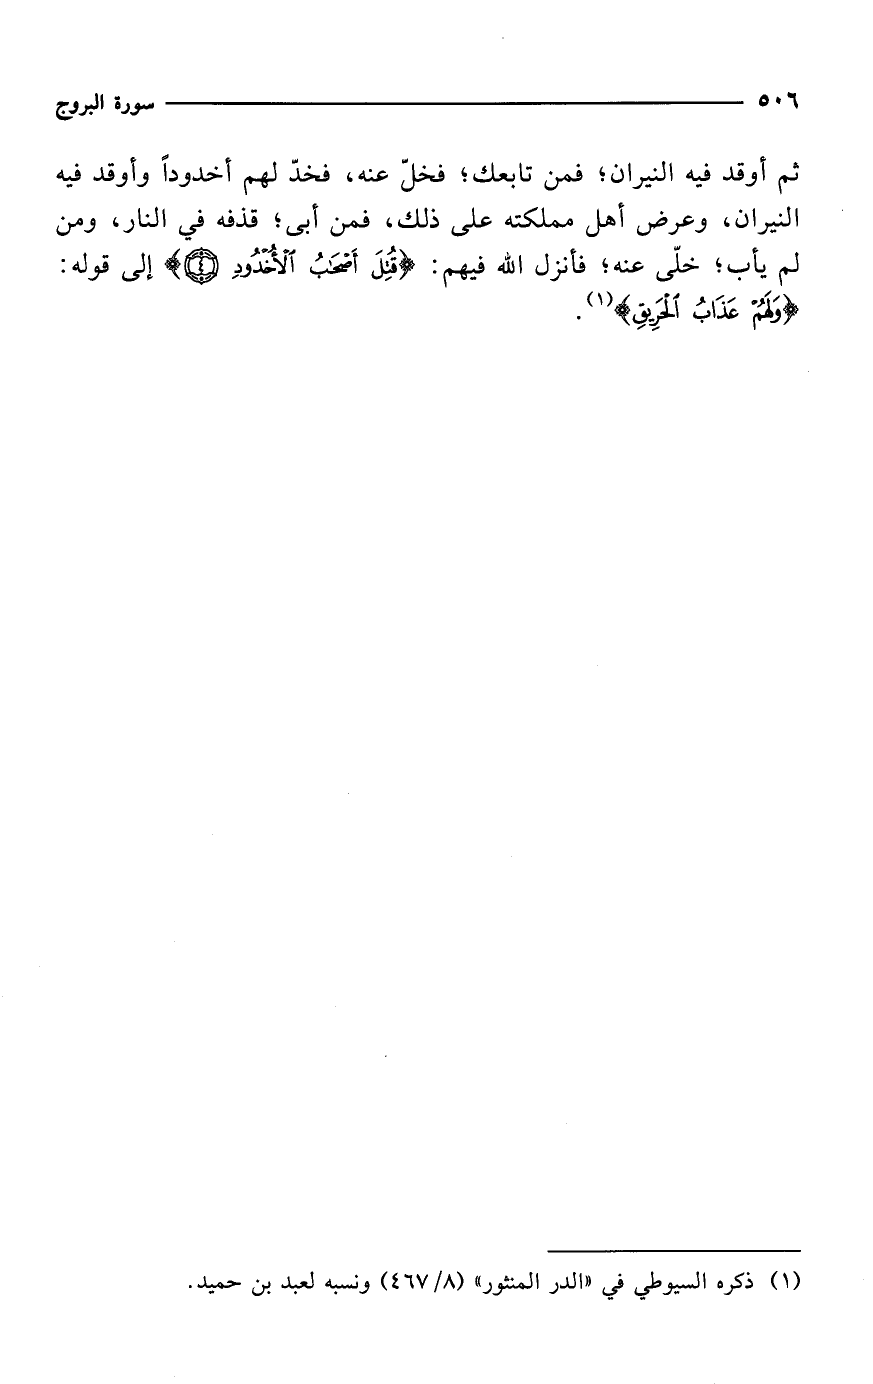 ٥٠٦ سورة البروج
ثم أوقد فيه النيران؛ فمن تابعك؛ فخلّ عنه، فخدّ لهم أخدوداً وأوقد فيه
النيران، وعرض أهل مملكته على ذلك، فمن أبى؛ قذفه في النار، ومن
لم يأب؛ خلّى عنه؛ فأنزل الله فيهم: ﴿قُتِلَ أَصْحَٰبُ ٱلْأُخْدُودِ ٤﴾ إلى قوله:
﴿وَلَهُمْ عَذَابُ ٱلْحَرِيقِ﴾(١).
(١) ذكره السيوطي في «الدر المنثور» (٤٦٧/٨) ونسبه لعبد بن حميد.